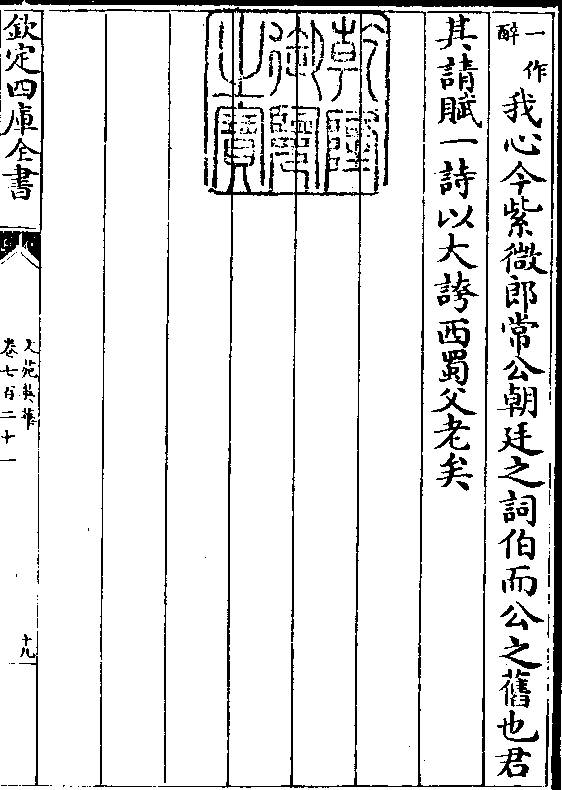 一作醉我心今紫微郎常公朝廷之詞伯而公之舊也君
其請賦一詩以大誇西蜀父老矣
乾隆御覽之寶
欽定四庫全書
文苑英華
卷七百二十一
十九